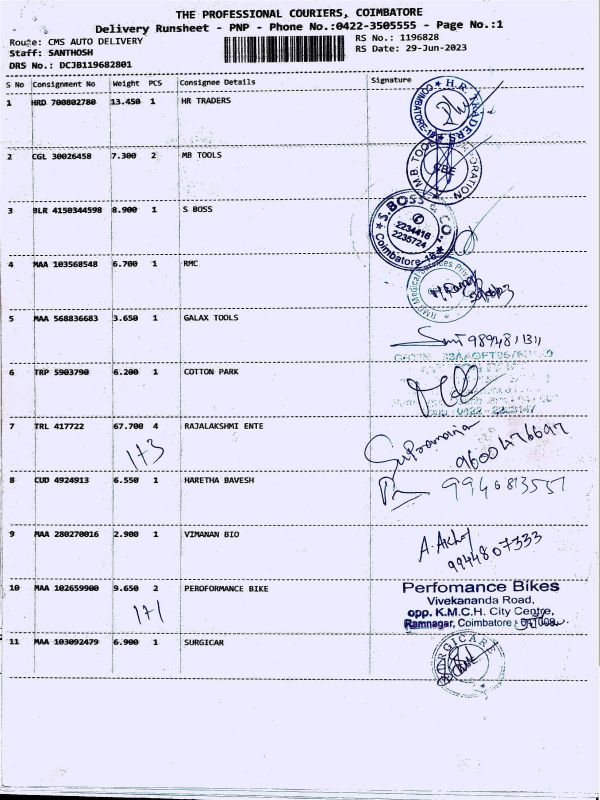 THE PROFESSIONAL COURIERS, COIMBATORE
Delivery Runsheet - PNP - Phone No.:0422-3505555 - Page No.:1
Route: CMS AUTO DELIVERY
RS No.: 1196828
Staff: SANTHOSH
RS Date: 29-Jun-2023
DRS No.: DCJB119682801
S No Consignment No Weight PCS Consignee Details Signature
1 HRD 700802780 13.450 1 HR TRADERS
H.R. TRADERS COIMBATORE-18
2 CGL 30026458 7.300 2 MB TOOLS
M.B. TOOLS CORPORATION CBE
3 BLR 4150344598 8.900 1 S BOSS
S. BOSS & CO.
2234418
2235724
Coimbatore-18
4 MAA 103568548 6.700 1 RMC
5 MAA 568836683 3.650 1 GALAX TOOLS
9894811311
6 TRP 5903790 6.200 1 COTTON PARK
7 TRL 417722 67.700 4 RAJALAKSHMI ENTE
1+3
9600476697
8 CUD 4924913 6.550 1 HARETHA BAVESH
9946813557
9 MAA 280270016 2.900 1 VIMANAN BIO
9944807333
10 MAA 102659900 9.650 2 PEROFORMANCE BIKE
1+1
Perfomance Bikes
Vivekananda Road,
opp. K.M.C.H. City Centre,
Ramnagar, Coimbatore
11 MAA 103092479 6.900 1 SURGICAR
SURGICARE